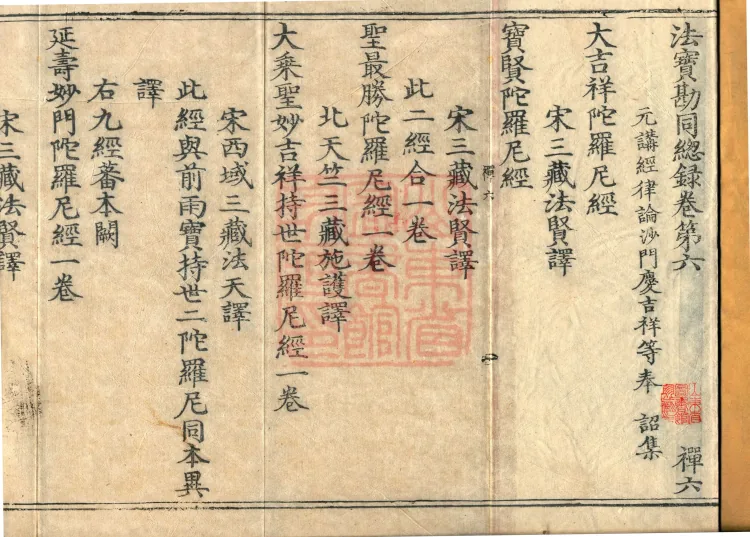 法寶勘同總録卷第六　禪六
元講經律論沙門慶吉祥等奉　詔集
大吉祥陀羅尼經
宋三藏法賢譯
寶賢陀羅尼經
宋三藏法賢譯
此二經合一卷
聖最勝陀羅尼經一卷
北天竺三藏施護譯
大乘聖妙吉祥持世陀羅尼經一卷
宋西域三藏法天譯
此經與前雨寶持世二陀羅尼同本異
譯
右九經蕃本闕
延壽妙門陀羅尼經一卷
宋三藏法賢譯